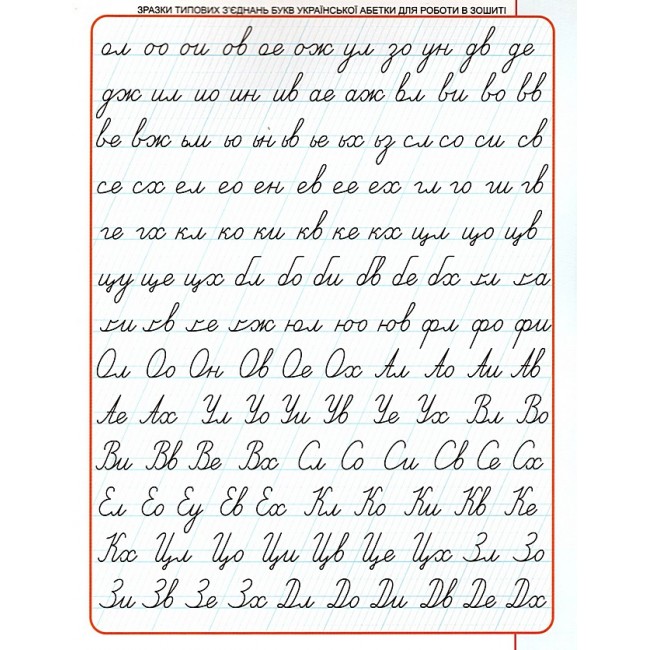 ЗРАЗКИ ТИПОВИХ З'ЄДНАНЬ БУКВ УКРАЇНСЬКОЇ АБЕТКИ ДЛЯ РОБОТИ В ЗОШИТІ
ол оо ои ов ое ож ул зо ун дв де
дж ил ио ин ив ае аж вл ви во вв
ве вж ьм ью ьн ьв ье ьх ьз сл со си св
се сх ел ео ен ев ее ех гл го ги гв
ге гх кл ко ки кв ке кх щл що щв
щу ще щх бл бо би бв бе бх ґл ґа
ґи ґв ґе ґж юл юо юв фл фо фи
Ол Оо Он Ов Ое Ох Ал Ао Аи Ав
Ае Ах Ул Уо Уи Ув Уе Ух Вл Во
Ви Вв Ве Вх Сл Со Си Св Се Сх
Ел Ео Еу Ев Ех Кл Ко Ки Кв Ке
Кх Цл Цо Ци Цв Це Цх Зл Зо
Зи Зв Зе Зх Дл До Ди Дв Де Дх